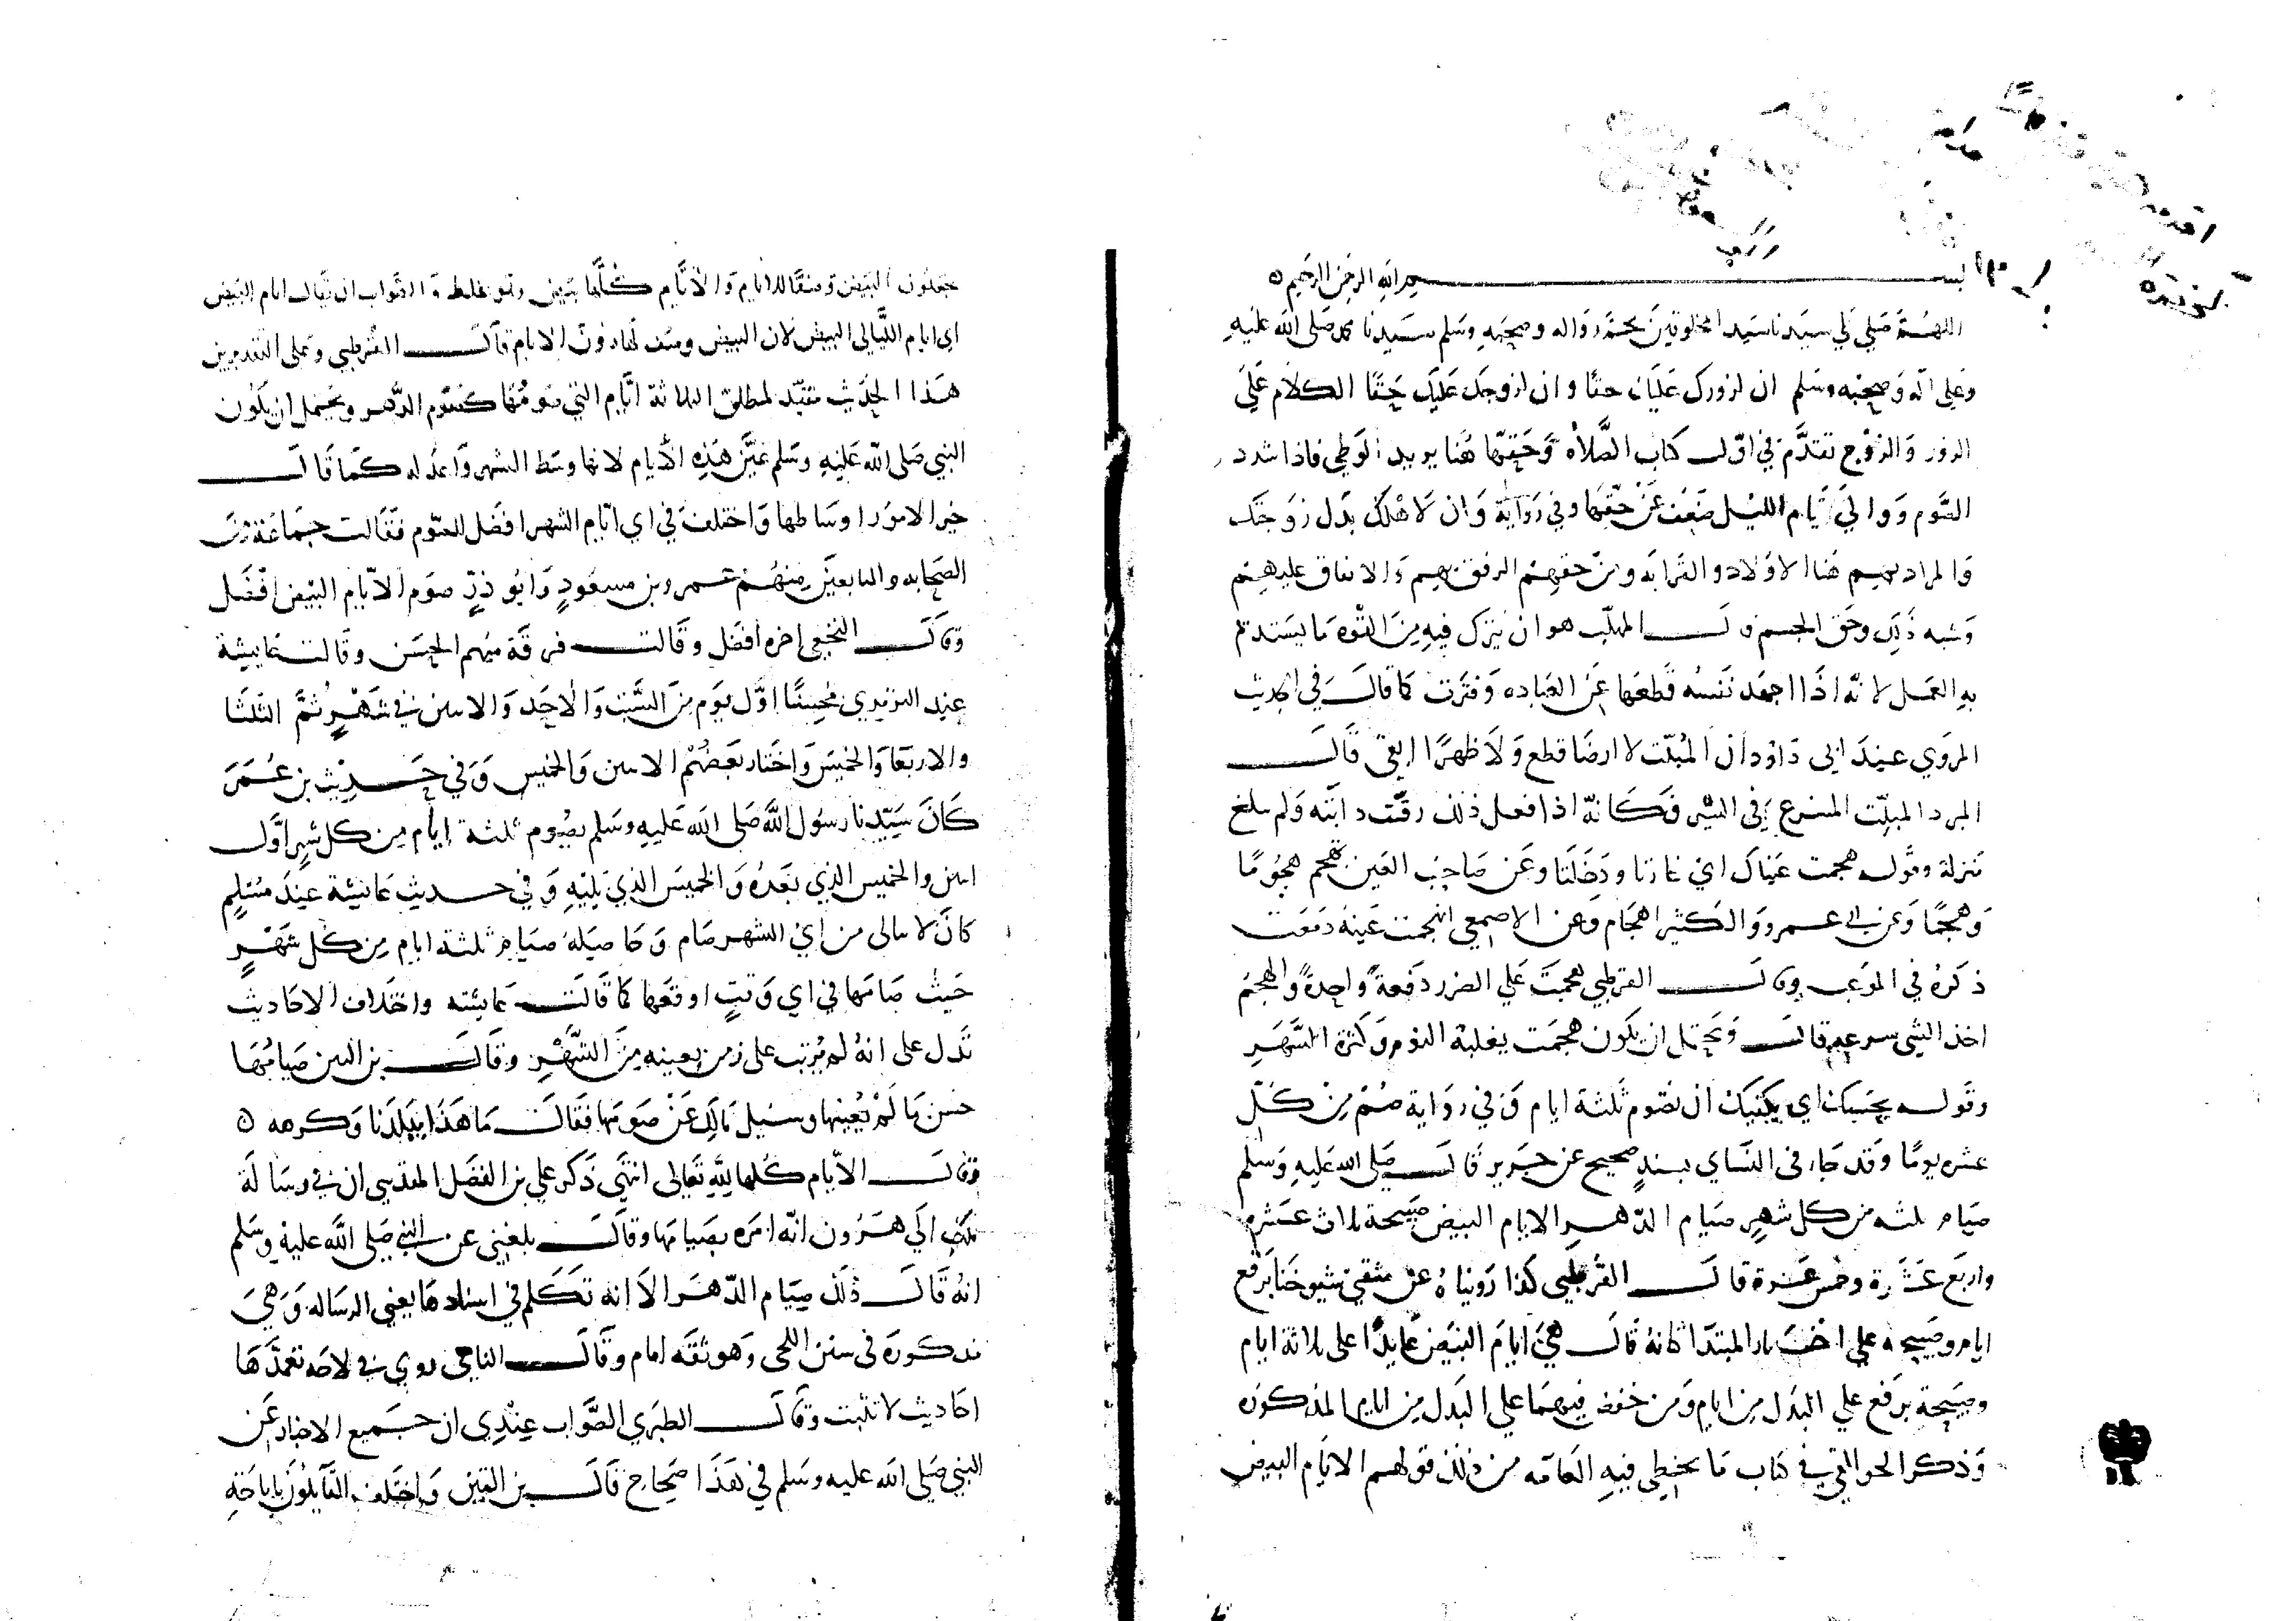 بسم الله الرحمن الرحيم
اللهم صلي علي سيدنا سيد المخلوقين محمد واله وصحبه وسلم سيدنا محمد صلى الله عليه
وعلى اله وصحبه وسلم ان لزورك عليك حقا وان لزوجك عليك حقا الكلام علي
الزور والزوج تقدم في اول كتاب الصلاة وحقها هنا يريد الوطي فاذا سرد
الصوم ووالي قيام الليل ضعف عن حقها وفي رواية وان لاهلك بدل زوجك
والمراد بهم هنا الاولاد والقرابه ومن حقهم الرفق بهم والانفاق عليهم
وشبه ذلك وحق الجسم قال المهلب هو ان يترك فيه من القوه ما يستديم
به العمل لانه اذا اجهد نفسه قطعها عن العباده وفترت كما قال في الحديث
المروي عند ابي داود ان المنبت لا ارضا قطع ولا ظهرا ابقى قال
المبرد المنبت المسرع في السير فكانه اذا فعل ذلك رقت دابته ولم يبلغ
منزلة وقوله هجمت عيناك اي غارتا ودخلتا وعن صاحب العين تهجم هجوما
وهجما وعن ابي عمرو والكثير اهجام وعن الاصمعي انهجمت عينه دمعت
ذكره في الموعب وقال القرطبي هجمت علي الضرر دفعة واحدة والهجم
اخذ الشي بسرعه قال ويحتمل ان يكون هجمت بغلبة النوم وكثرة السهر
وقوله بحسبك اي يكفيك ان تصوم ثلثة ايام وفي رواية صم من كل
عشره يوما وقد جاء في النساي بسند صحيح عن جرير قال صلى الله عليه وسلم
صيام ثلثه من كل شهر صيام الدهر الايام البيض صبيحة ثلاث عشره
واربع عشرة وخمس عشرة قال القرطبي كذا رويناه عن متقني شيوخنا برفع
ايام وصبيحة علي اضمار المبتدا كانه قال هي ايام البيض عايدا على ثلاثة ايام
وصبيحة برفع علي البدل من ايام ومن خفض فيهما علي البدل من ايام المذكوره
وذكر الجواليقي في كتاب ما يخطي فيه العامه من ذلك قولهم الايام البيض
يجعلون البيض وصفا للايام والايام كلها بيض وهو غلط والصواب ان يقال ايام البيض
اي ايام الليالي البيض لان البيض وصف لها دون الايام قال القرطبي وعلى التقديرين
هذا الحديث مقيد لمطلق الثلاثة ايام التي صومها كصوم الدهر ويحتمل ان يكون
النبي صلى الله عليه وسلم عين هذه الايام لانها وسط الشهر واعدله كما قال
خير الامور اوساطها واختلف في اي ايام الشهر افضل للصوم فقالت جماعة من
الصحابه والتابعين منهم عمر وبن مسعود وابو ذر صوم الايام البيض افضل
وقال النخعي اخره افضل وقالت فرقة منهم الحسن وقالت عايشة
عند الترمذي محسنا اول يوم من السبت والاحد والاثنين في شهر ثم الثلثا
والاربعا والخميس واختار بعضهم الاثنين والخميس وفي حديث بن عمر
كان سيدنا رسول الله صلى الله عليه وسلم يصوم ثلثة ايام من كل شهر اول
اثنين والخميس الذي بعده والخميس الذي يليه وفي حديث عايشة عند مسلم
كان لا يبالى من اي الشهر صام وحاصيله صيام ثلثة ايام من كل شهر
حيث صامها في اي وقت اوقعها كما قالت عايشه واختلاف الاحاديث
تدل على انه لم يرتب على زمن بعينه من الشهر وقال بن التين صيامها
حسن ما لم يعينها وسئل مالك عن صومها فقال ما هذا ببلدنا وكرهه
وقال الايام كلها لله تعالى انتهى ذكر علي بن الفضل المقدسي ان في رسالة
مالك الي هرون انه امره بصيامها وقال بلغني عن النبي صلى الله عليه وسلم
انه قال ذلك صيام الدهر الا انه تكلم في اسنادها يعني الرساله وهي
مذكورة في سنن اللجي وهو ثقه امام وقال الباجي روي في اباحه تعمدها
احاديث لا تثبت وقال الطبري الصواب عندي ان جميع الاخبار عن
النبي صلى الله عليه وسلم في هذا صحاح قال بن التين واختلف القايلون باباحة